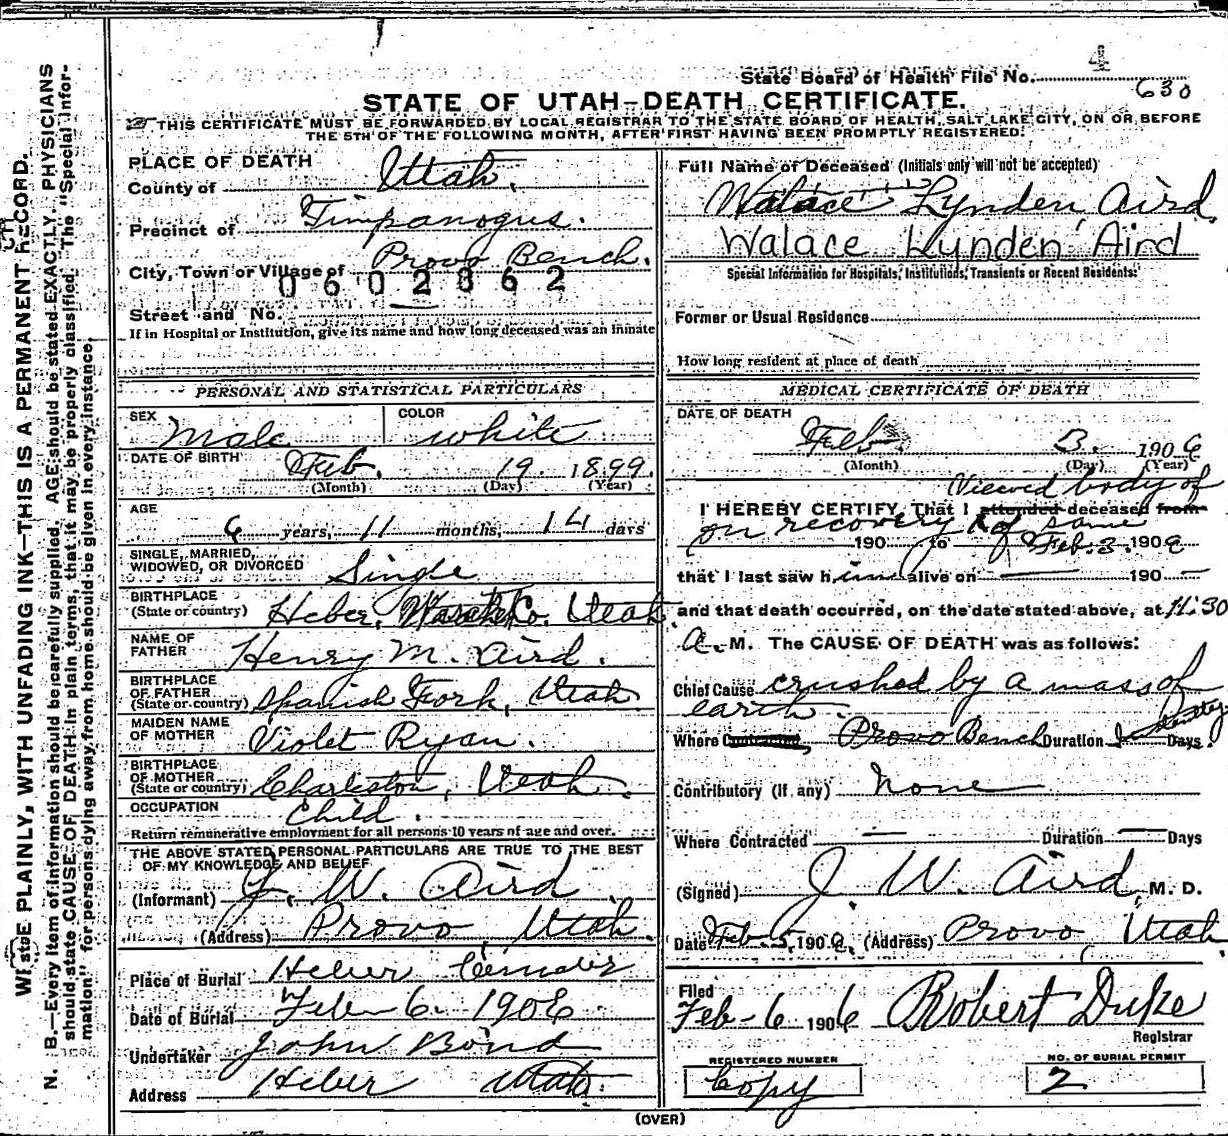 4
State Board of Health File No.
630
STATE OF UTAH—DEATH CERTIFICATE.
THIS CERTIFICATE MUST BE FORWARDED BY LOCAL REGISTRAR TO THE STATE BOARD OF HEALTH, SALT LAKE CITY, ON OR BEFORE
THE 5TH OF THE FOLLOWING MONTH, AFTER FIRST HAVING BEEN PROMPTLY REGISTERED.
PLACE OF DEATH
County of Utah.
Precinct of Timpanogus.
City, Town or Village of Provo Bench.
0602862
Street and No.
If in Hospital or Institution, give its name and how long deceased was an inmate
PERSONAL AND STATISTICAL PARTICULARS
SEX Male COLOR white
DATE OF BIRTH Feb. 19 1899.
(Month) (Day) (Year)
AGE
6 years, 11 months, 14 days
SINGLE, MARRIED,
WIDOWED, OR DIVORCED Single
BIRTHPLACE
(State or country) Heber, Wasatch Co. Utah
NAME OF
FATHER Henry M. Aird.
BIRTHPLACE
OF FATHER
(State or country) Spanish Fork, Utah
MAIDEN NAME
OF MOTHER Violet Ryan.
BIRTHPLACE
OF MOTHER
(State or country) Charleston, Utah.
OCCUPATION Child.
Return remunerative employment for all persons 10 years of age and over.
THE ABOVE STATED PERSONAL PARTICULARS ARE TRUE TO THE BEST
OF MY KNOWLEDGE AND BELIEF
(Informant) J. W. Aird
(Address) Provo, Utah.
Place of Burial Heber
Date of Burial Feb 6 1906
Undertaker John Bond
Address Heber Utah.
Full Name of Deceased (Initials only will not be accepted)
Walace Lynden Aird.
Walace Lynden Aird
Special Information for Hospitals, Institutions, Transients or Recent Residents.
Former or Usual Residence
How long resident at place of death
MEDICAL CERTIFICATE OF DEATH
DATE OF DEATH
Feb 3. 1906
(Month) (Day) (Year)
Viewed body of
I HEREBY CERTIFY, That I attended deceased from
on recovery of same
190 to Feb. 3. 1906
that I last saw him alive on 190
and that death occurred, on the date stated above, at 11:30
A. M. The CAUSE OF DEATH was as follows:
Chief Cause crushed by a mass of
earth.
Where Contracted Provo Bench Duration Days.
Contributory (If any) None
Where Contracted Duration Days
(Signed) J. W. Aird, M. D.
Date Feb. 5, 1906. (Address) Provo, Utah.
Filed
Feb-6 1906 Robert Duke
Registrar
REGISTERED NUMBER
Copy
NO. OF BURIAL PERMIT
2
(OVER)
WRITE PLAINLY, WITH UNFADING INK—THIS IS A PERMANENT RECORD.
N. B.—Every item of information should be carefully supplied. AGE should be stated EXACTLY. PHYSICIANS
should state CAUSE OF DEATH in plain terms, that it may be properly classified. The "Special Infor-
mation" for persons dying away from home should be given in every instance.